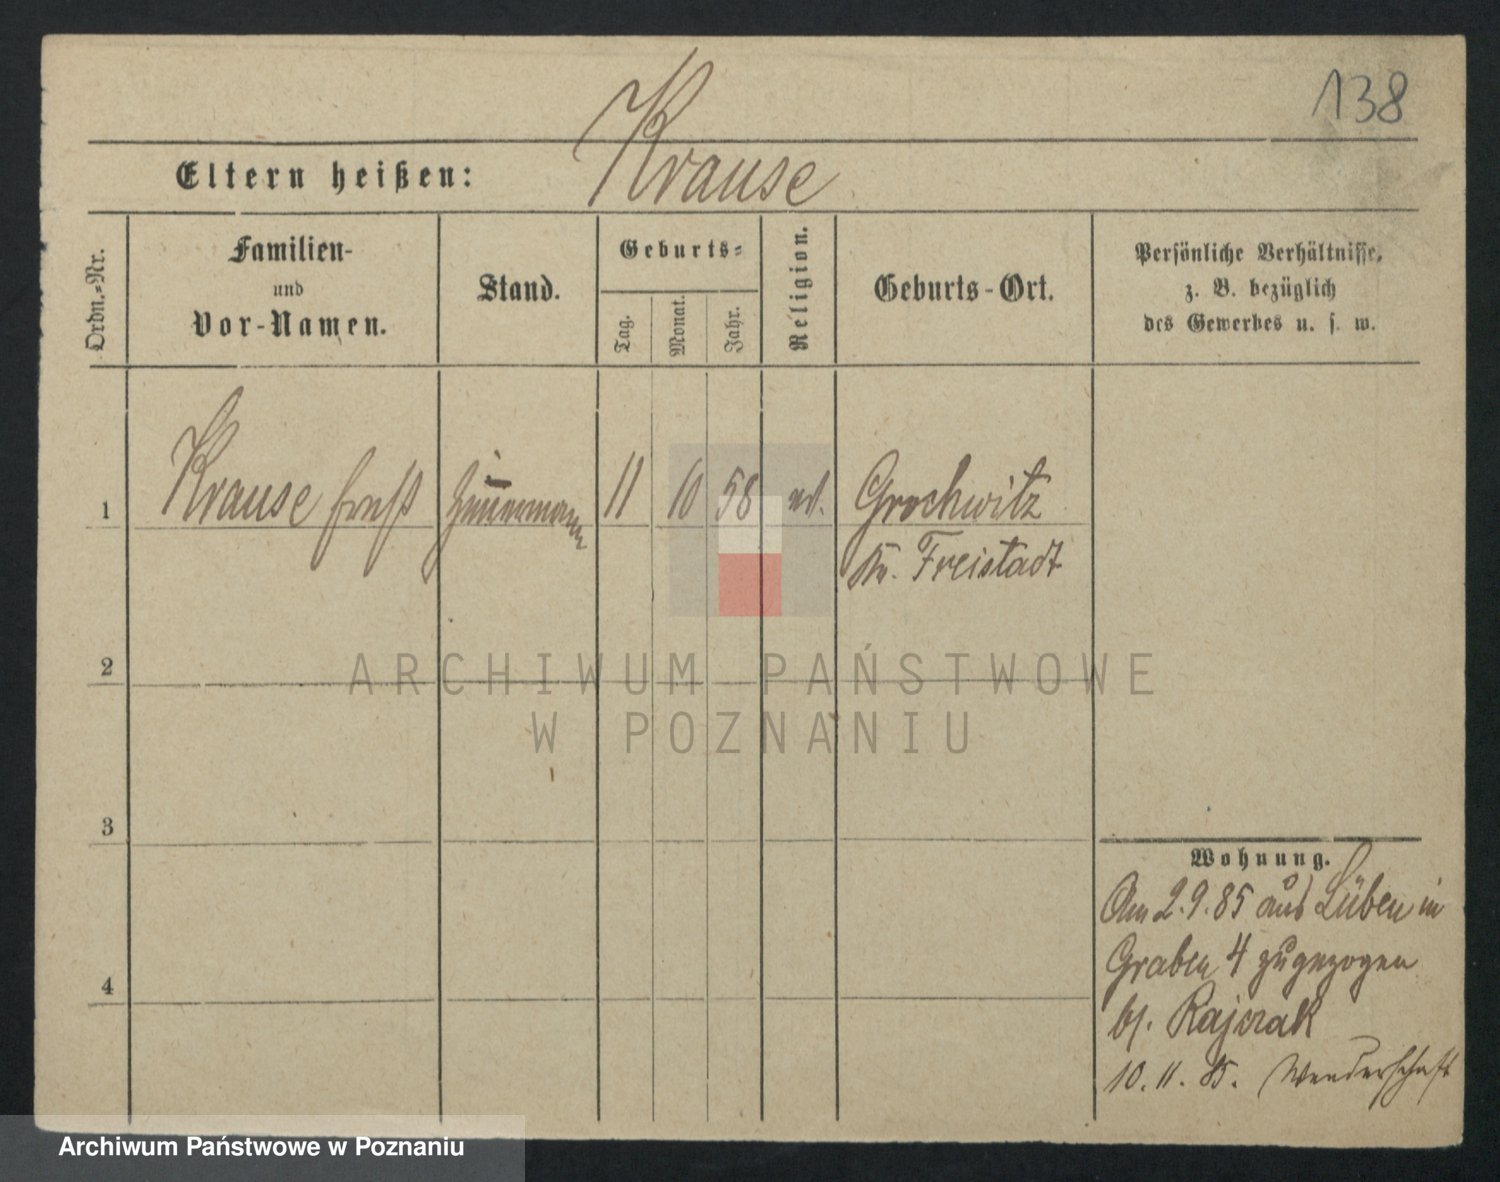 138
Krause
Eltern heißen:
Ordn.-Nr.
Familien-
und
Vor-Namen.
Stand.
Geburts-
Tag.
Monat.
Jahr.
Religion.
Geburts-Ort.
Persönliche Verhältnisse,
z. B. bezüglich
des Gewerbes u. s. w.
1
Krause
Zimmermann
11
10
58
Grochwitz
Kr. Freistadt
2
3
4
ARCHIWUM PAŃSTWOWE
W POZNANIU
Wohnung.
Am 2.9.85 aus Lüben in
Graben 4 zugezogen
b/. Rajczak
10. 11. 85. Wanderschaft
Archiwum Państwowe w Poznaniu